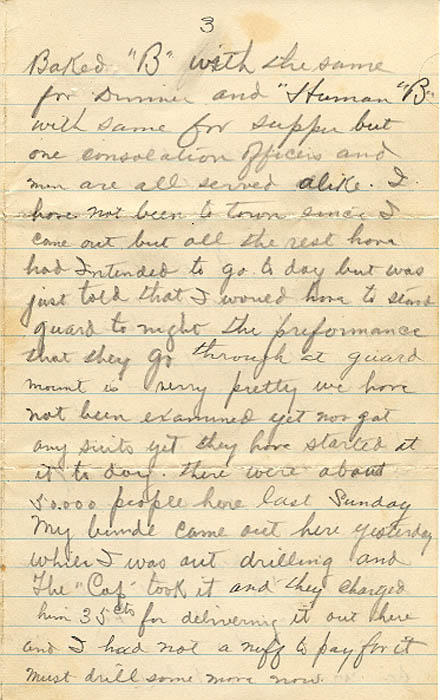 3
Baked "B" with the same
for Dinner and "Human "B"
with same for supper but
one consolation officers and
men are all served alike. I
have not been to town since I
came out but all the rest have
had Intended to go to day but was
just told that I would have to stand
guard to night the preformance
that they go through at guard
mount is verry pretty we have
not been examined yet nor got
any suits yet they have started at
it to day. there were about
50.000 people here last Sunday
My bundle came out here yesterday
while I was out drilling and
The "Cap" took it and they charged
him 35 cts for delivering it out here
and I had not a to pay for it
must drill some more now.